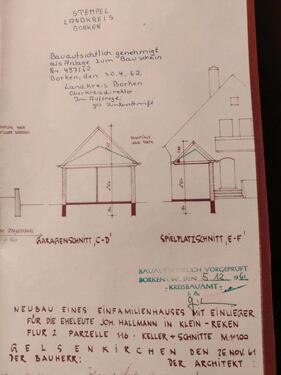 STEMPEL
LANDKREIS
BORKEN
Bauaufsichtlich genehmigt
als Anlage zum Bauschein
Nr.
Borken, den 30.4.62
Landkreis Borken
Oberkreisdirektor
Im Auftrage
gez. Unterschrift
GARAGENSCHNITT „C-D"
SPIELPLATZSCHNITT „E-F"
BAUAUFSICHTLICH VORGEPRÜFT
BORKEN I.W. DEN 5.12.1961
-KREISBAUAMT-
I.A.
NEUBAU EINES EINFAMILIENHAUSES MIT EINLIEGER
FÜR DIE EHELEUTE JOH HALLMANN IN KLEIN-REKEN
FLUR 2 PARZELLE 116 · KELLER + SCHNITTE M.1:100
GELSENKIRCHEN DEN 26 NOV. 61
DER BAUHERR: DER ARCHITEKT: